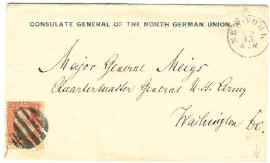 CONSULATE GENERAL OF THE NORTH GERMAN UNION.
NEW-YORK
Major General Meigs
Quartermaster General U.S. Army
Washington D.C.